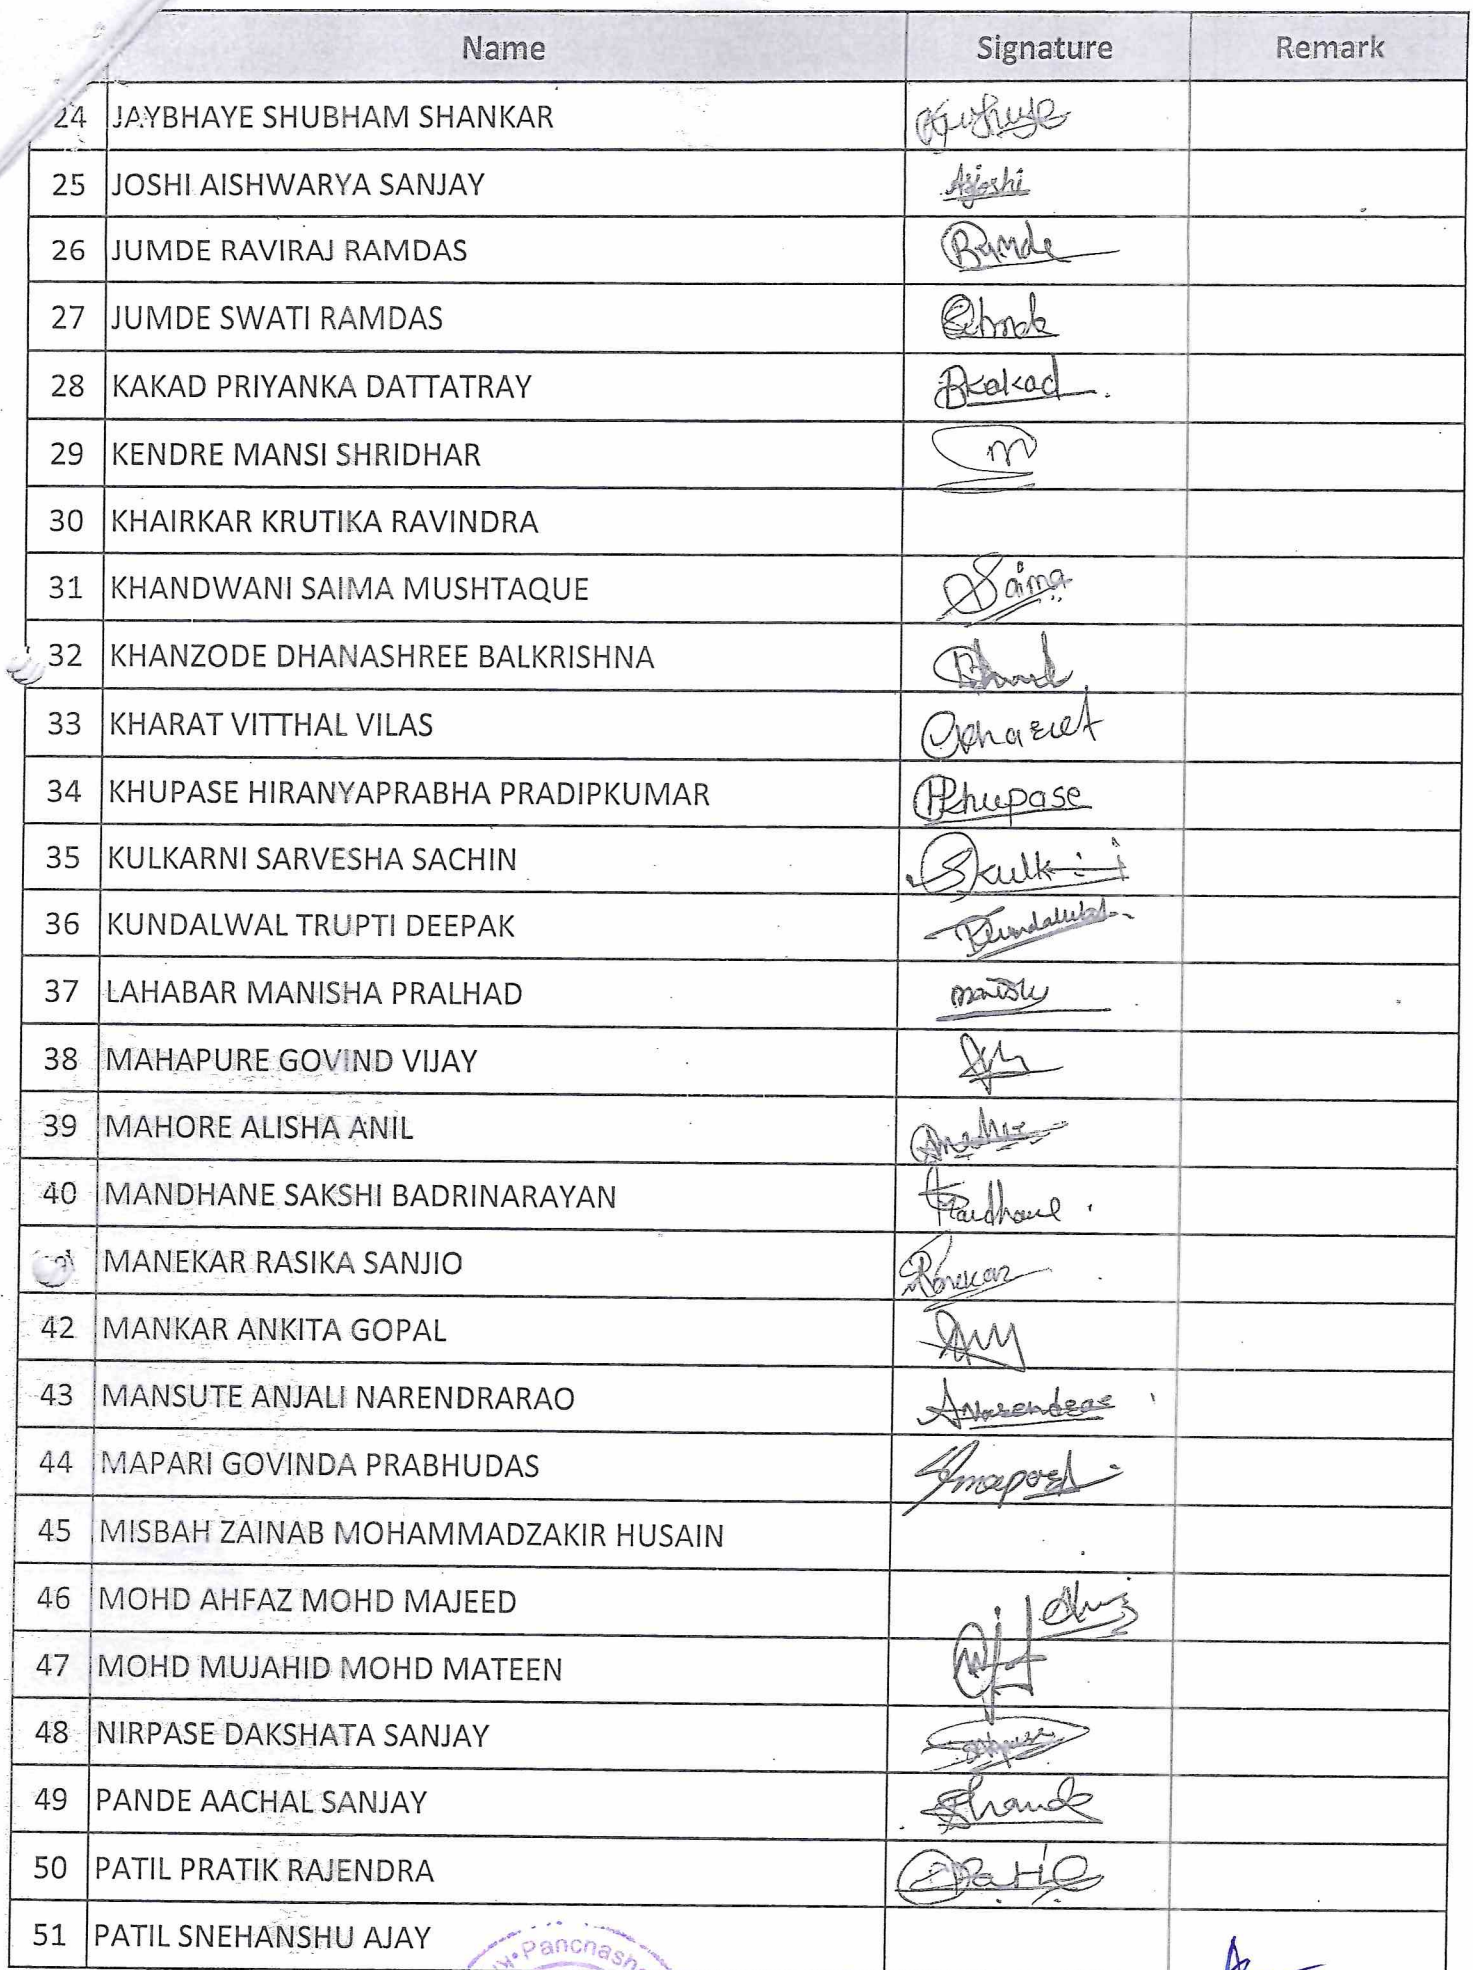 Name Signature Remark
24 JAYBHAYE SHUBHAM SHANKAR
25 JOSHI AISHWARYA SANJAY Asjoshi
26 JUMDE RAVIRAJ RAMDAS
27 JUMDE SWATI RAMDAS
28 KAKAD PRIYANKA DATTATRAY Pkakad
29 KENDRE MANSI SHRIDHAR M
30 KHAIRKAR KRUTIKA RAVINDRA
31 KHANDWANI SAIMA MUSHTAQUE Saima
32 KHANZODE DHANASHREE BALKRISHNA
33 KHARAT VITTHAL VILAS
34 KHUPASE HIRANYAPRABHA PRADIPKUMAR HKhupase
35 KULKARNI SARVESHA SACHIN
36 KUNDALWAL TRUPTI DEEPAK
37 LAHABAR MANISHA PRALHAD
38 MAHAPURE GOVIND VIJAY
39 MAHORE ALISHA ANIL
40 MANDHANE SAKSHI BADRINARAYAN
MANEKAR RASIKA SANJIO
42 MANKAR ANKITA GOPAL
43 MANSUTE ANJALI NARENDRARAO
44 MAPARI GOVINDA PRABHUDAS
45 MISBAH ZAINAB MOHAMMADZAKIR HUSAIN
46 MOHD AHFAZ MOHD MAJEED
47 MOHD MUJAHID MOHD MATEEN
48 NIRPASE DAKSHATA SANJAY
49 PANDE AACHAL SANJAY
50 PATIL PRATIK RAJENDRA
51 PATIL SNEHANSHU AJAY